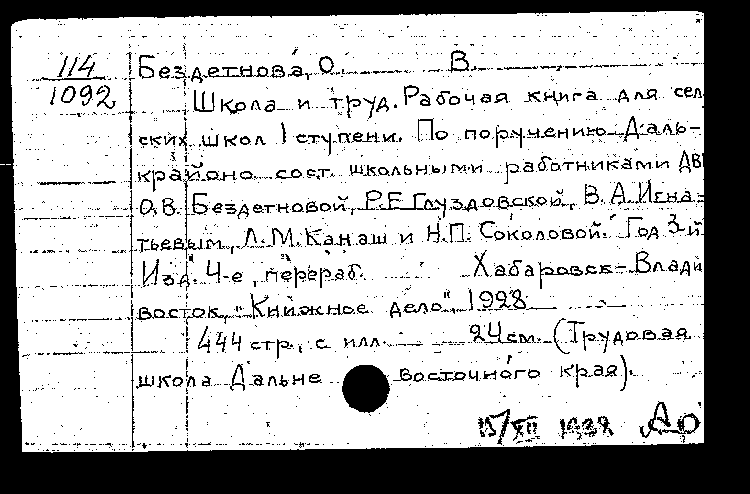 114
1092
Бездетнова, О. В.
Школа и труд. Рабочая книга для сел
ских школ I ступени. По поручению Даль-
крайоно сост. школьными работниками ДВ
О.В. Бездетновой, Р.Е. Глуздовской, В.А. Игна-
тьевым, Л.М. Канаш и Н.П. Соколовой. Год 3-й
Изд. 4-е, перераб. Хабаровск-Влади
восток, "Книжное дело", 1928
444 стр., с илл. 24 см. (Трудовая
школа Дальне восточного края).
15/XII 1938